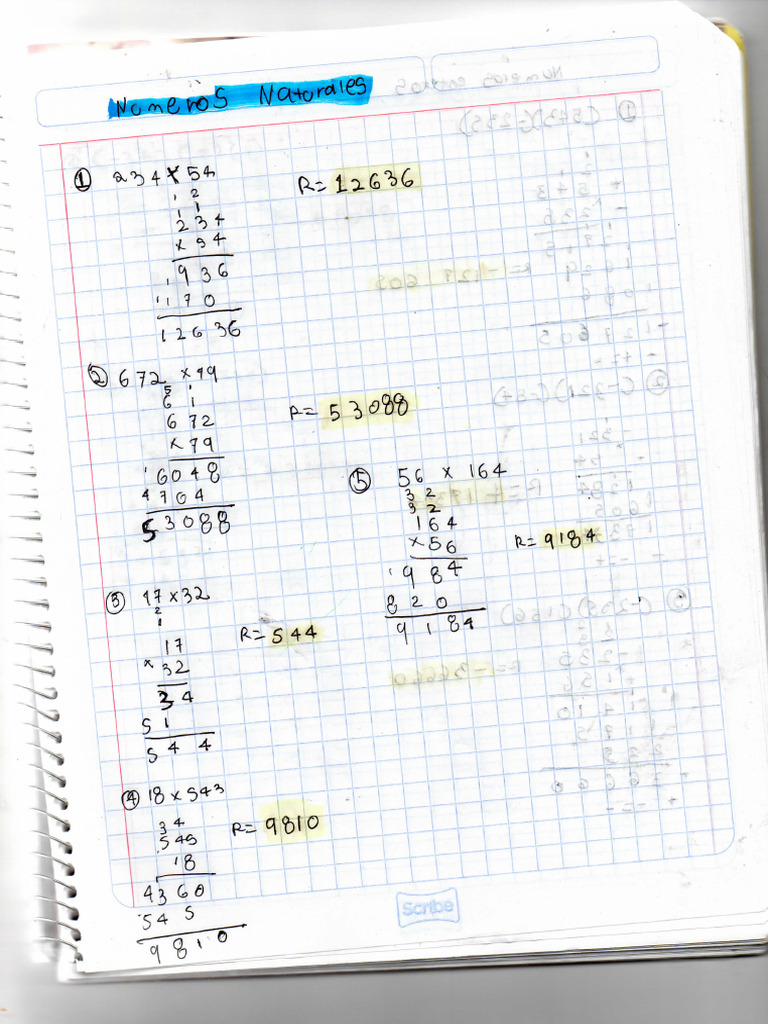 Numeros Naturales
① 234 x 54
1 2
1 1
234
x 54
936
1170
12636
R= 12636
② 672 x 79
5 1
6 1
672
x 79
6048
4704
53088
R= 53088
③ 17 x 32
2
1
17
x 32
34
51
544
R= 544
④ 18 x 543
3 4
545
18
4360
545
9810
R= 9810
⑤ 56 x 164
3 2
3 2
164
x 56
984
820
9184
R= 9184
Scribe